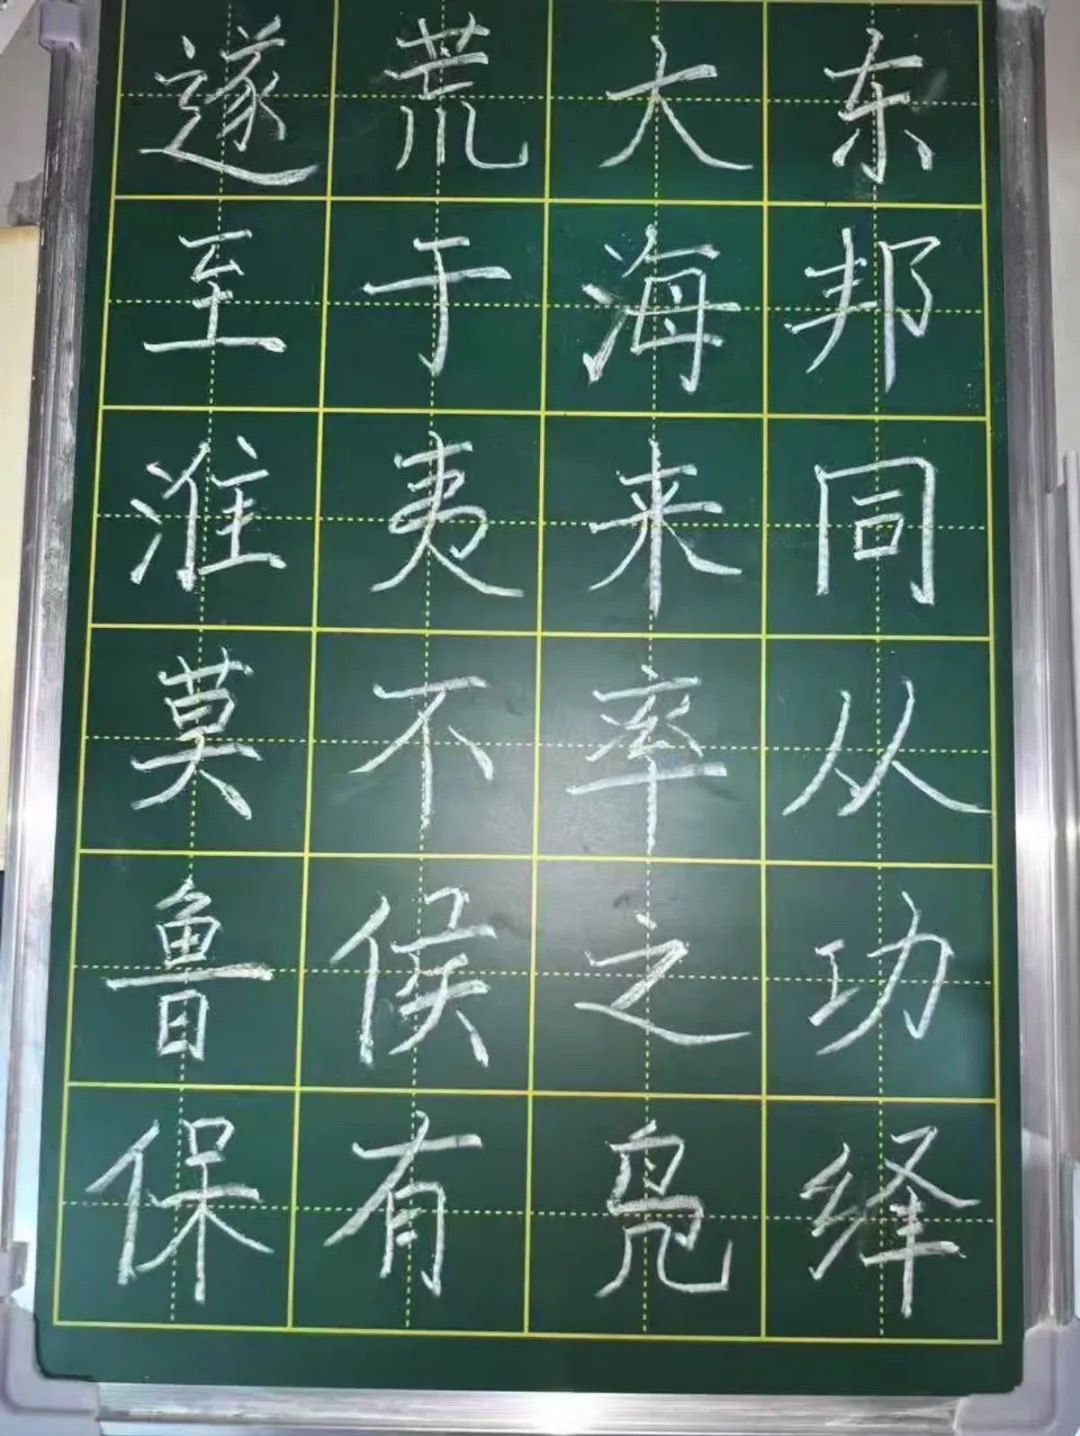 遂荒大东
至于海邦
淮夷来同
莫不率从
鲁侯之功
保有凫绎